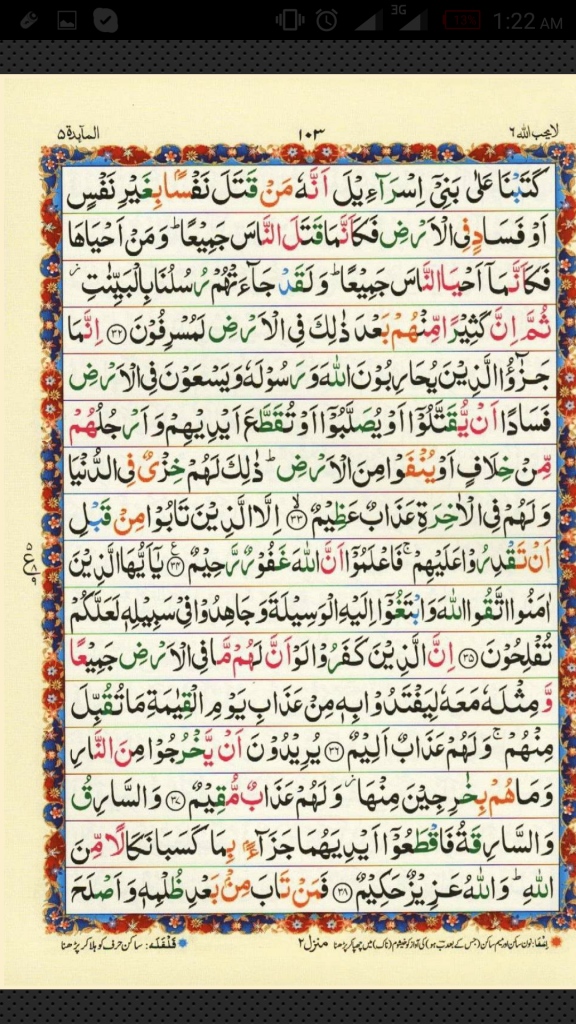 3G 13% 1:22 AM
المآىِٕدة ٥ ١٠٣ لا یحب اللّٰه ٦
كَتَبْنَا عَلٰى بَنِیْۤ اِسْرَآءِیْلَ اَنَّهٗ مَنْ قَتَلَ نَفْسًۢا بِغَیْرِ نَفْسٍ
اَوْ فَسَادٍ فِی الْاَرْضِ فَكَاَنَّمَا قَتَلَ النَّاسَ جَمِیْعًاؕ وَ مَنْ اَحْیَاهَا
فَكَاَنَّمَاۤ اَحْیَا النَّاسَ جَمِیْعًاؕ وَ لَقَدْ جَآءَتْهُمْ رُسُلُنَا بِالْبَیِّنٰتِ٘
ثُمَّ اِنَّ كَثِیْرًا مِّنْهُمْ بَعْدَ ذٰلِكَ فِی الْاَرْضِ لَمُسْرِفُوْنَ ﴿۳۲﴾ اِنَّمَا
جَزٰٓؤُا الَّذِیْنَ یُحَارِبُوْنَ اللّٰهَ وَ رَسُوْلَهٗ وَ یَسْعَوْنَ فِی الْاَرْضِ
فَسَادًا اَنْ یُّقَتَّلُوْۤا اَوْ یُصَلَّبُوْۤا اَوْ تُقَطَّعَ اَیْدِیْهِمْ وَ اَرْجُلُهُمْ
مِّنْ خِلَافٍ اَوْ یُنْفَوْا مِنَ الْاَرْضِؕ ذٰلِكَ لَهُمْ خِزْیٌ فِی الدُّنْیَا
وَ لَهُمْ فِی الْاٰخِرَةِ عَذَابٌ عَظِیْمٌۙ ﴿۳۳﴾ اِلَّا الَّذِیْنَ تَابُوْا مِنْ قَبْلِ
اَنْ تَقْدِرُوْا عَلَیْهِمْۚ فَاعْلَمُوْۤا اَنَّ اللّٰهَ غَفُوْرٌ رَّحِیْمٌ ﴿۳۴﴾ یٰۤاَیُّهَا الَّذِیْنَ
اٰمَنُوا اتَّقُوا اللّٰهَ وَ ابْتَغُوْۤا اِلَیْهِ الْوَسِیْلَةَ وَ جَاهِدُوْا فِیْ سَبِیْلِهٖ لَعَلَّكُمْ
تُفْلِحُوْنَ ﴿۳۵﴾ اِنَّ الَّذِیْنَ كَفَرُوْا لَوْ اَنَّ لَهُمْ مَّا فِی الْاَرْضِ جَمِیْعًا
وَّ مِثْلَهٗ مَعَهٗ لِیَفْتَدُوْا بِهٖ مِنْ عَذَابِ یَوْمِ الْقِیٰمَةِ مَا تُقُبِّلَ
مِنْهُمْۚ وَ لَهُمْ عَذَابٌ اَلِیْمٌ ﴿۳۶﴾ یُرِیْدُوْنَ اَنْ یَّخْرُجُوْا مِنَ النَّارِ
وَ مَا هُمْ بِخٰرِجِیْنَ مِنْهَا٘ وَ لَهُمْ عَذَابٌ مُّقِیْمٌ ﴿۳۷﴾ وَ السَّارِقُ
وَ السَّارِقَةُ فَاقْطَعُوْۤا اَیْدِیَهُمَا جَزَآءًۢ بِمَا كَسَبَا نَكَالًا مِّنَ
اللّٰهِؕ وَ اللّٰهُ عَزِیْزٌ حَكِیْمٌ ﴿۳۸﴾ فَمَنْ تَابَ مِنْۢ بَعْدِ ظُلْمِهٖ وَ اَصْلَحَ
منزل ٢ قلقلہ: ساکن حرف کو ہلا کر پڑھنا